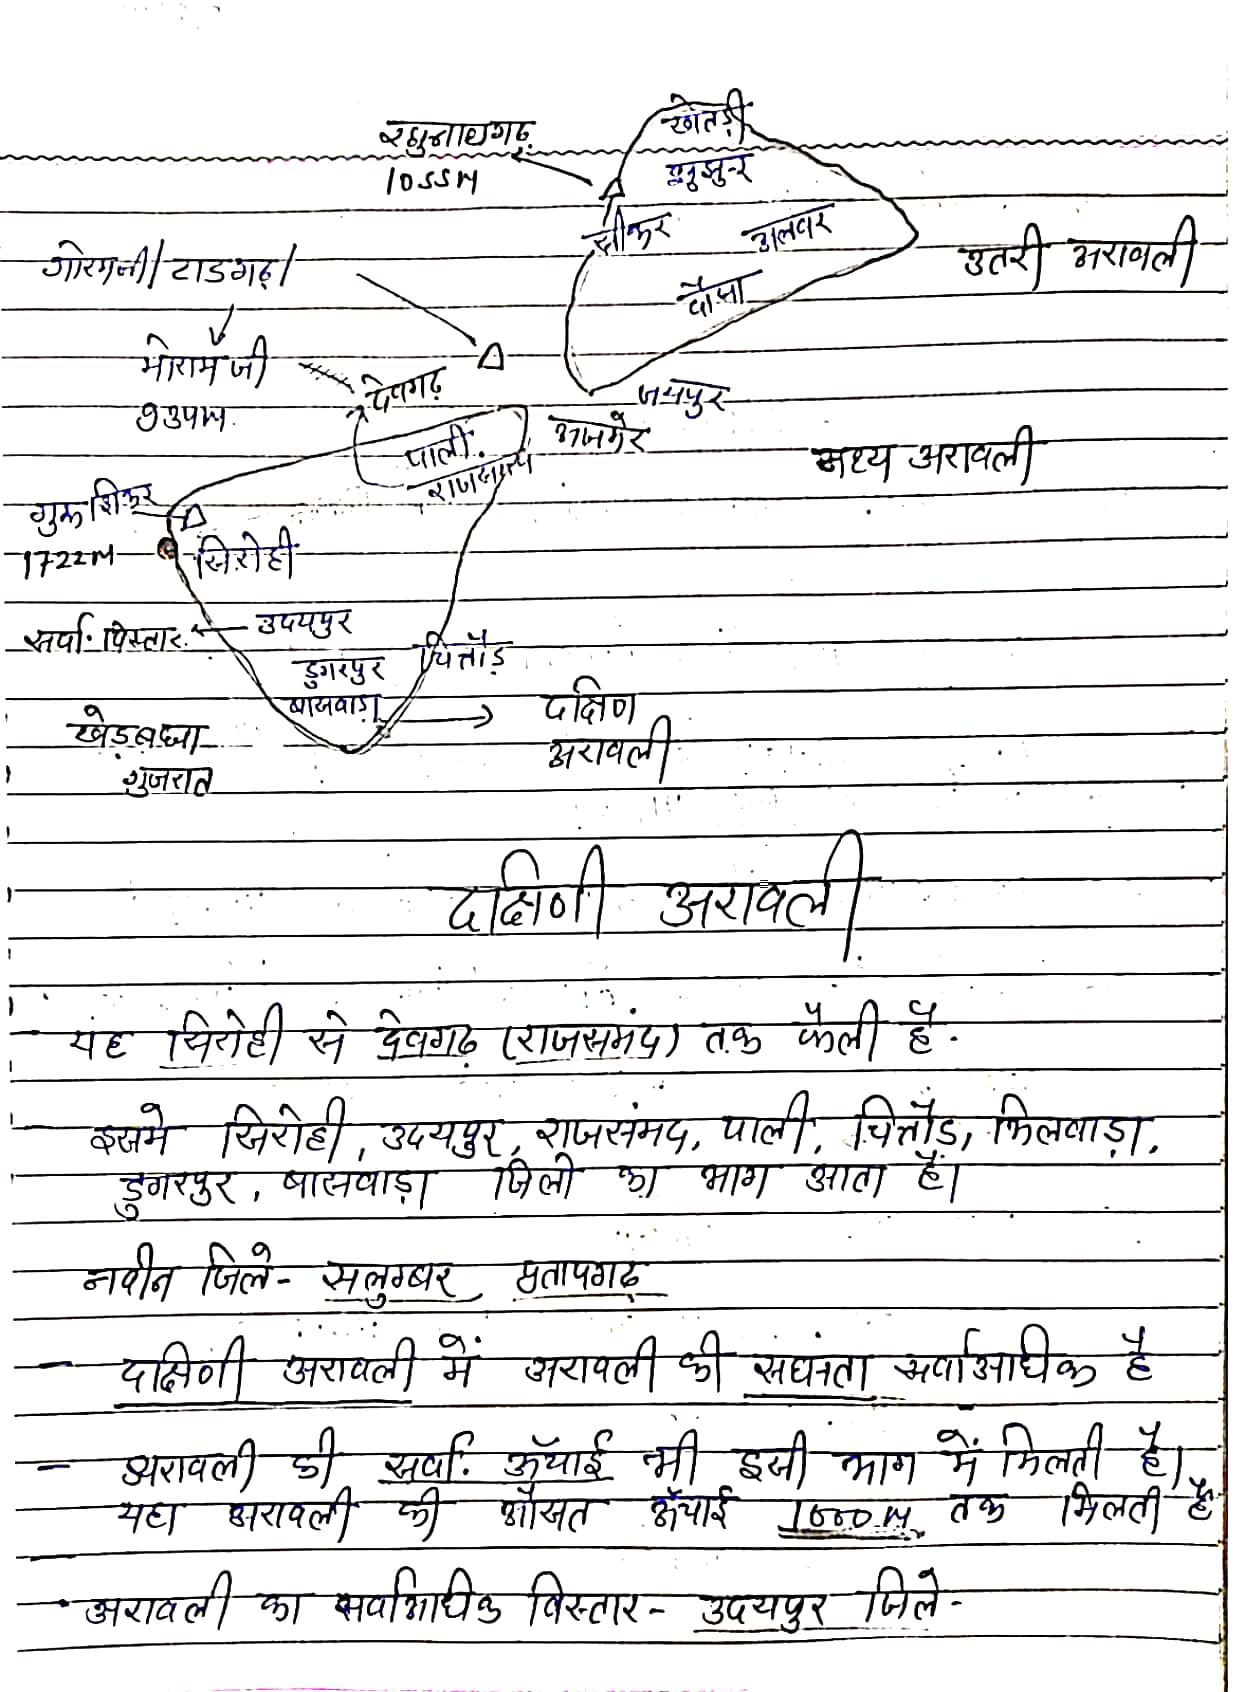 खेतड़ी
रघुनाथगढ़
1055M
झुझुनर
सीकर
अलवर
उतरी अरावली
गोरमजी/टाडगढ़/
दौसा
मोरामजी
934M
देवगढ़
जयपुर
अजमेर
मध्य अरावली
पाली
राजसमन्द
गुरू शिकर
1722M
सिरोही
सर्वा. विस्तार
उदयपुर
चित्तौड़
डुगरपुर
बासवाड़ा
दक्षिण
अरावली
खेड़बघ्रा
गुजरात
दक्षिणी अरावली
- यह सिरोही से देवगढ़ (राजसमंद) तक फैली है.
- इसमे सिरोही, उदयपुर, राजसंमद, पाली, चित्तौड़, भिलवाड़ा,
डुगरपुर, बासवाड़ा जिलो का भाग आता है।
नवीन जिले- सलुम्बर प्रतापगढ़
- दक्षिणी अरावली में अरावली की सघंनता सर्वाआधिक है
- अरावली की सर्वा. ऊँचाई भी इसी भाग में मिलती है।
यहा अरावली की औसत ऊँचाई 1000M तक मिलती है
- अरावली का सर्वाआधिक विस्तार- उदयपुर जिले-